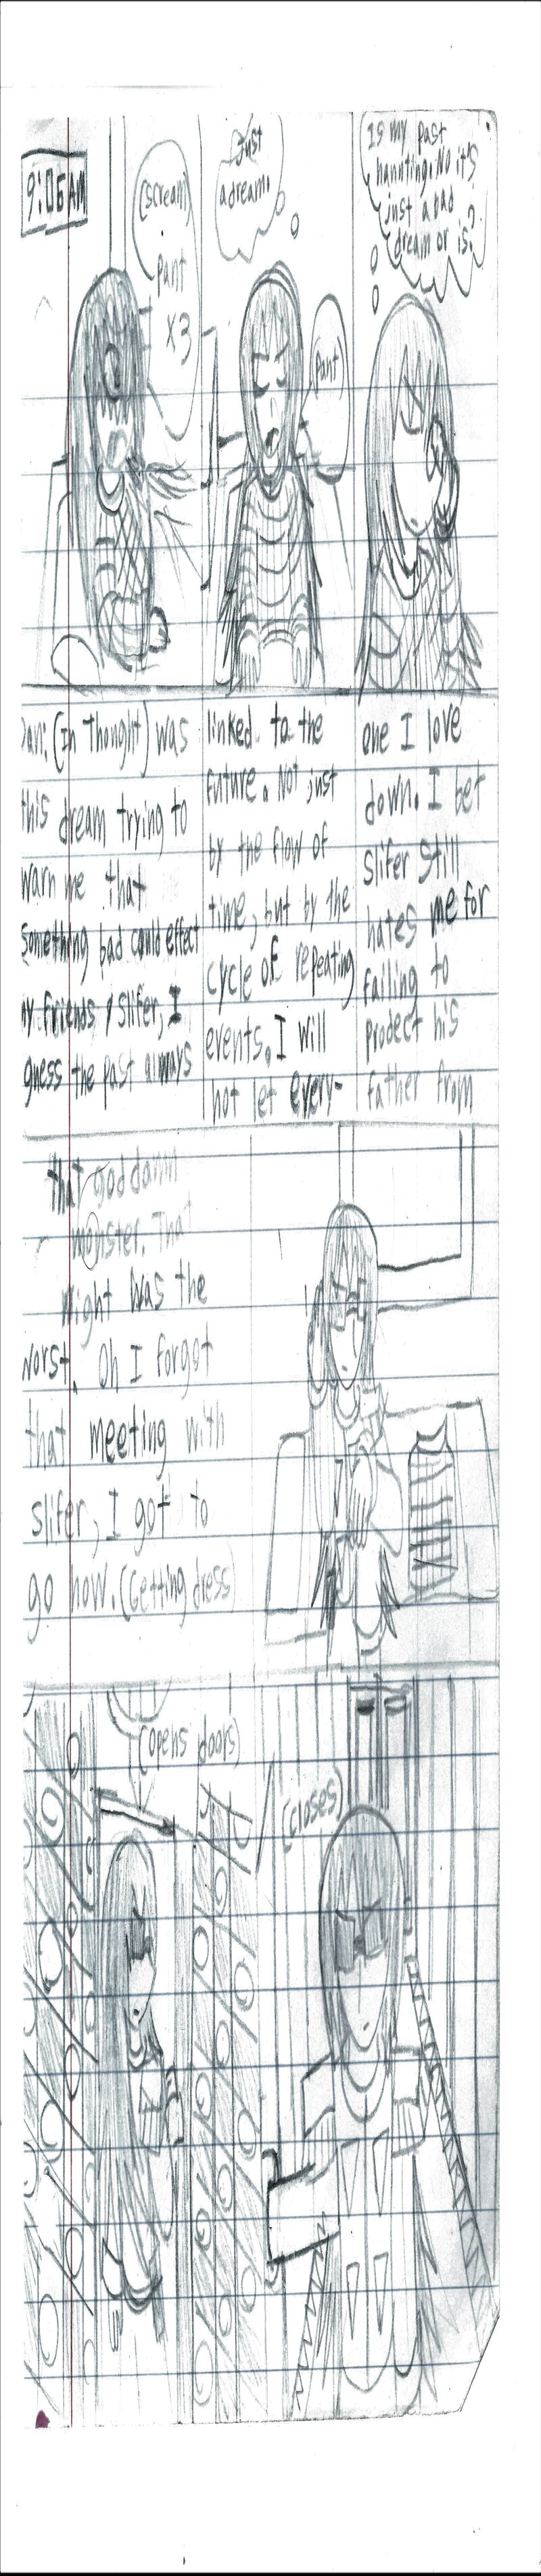 9:06 AM
(scream)
pant
x3
Just
a dream.
pant
Is my past
hannting. No it's
just a bad
dream or is?
(In thought) was
this dream trying to
warn me that
something bad could effect
my friends / slifer, I
guess the past always
linked to the
future. Not just
by the flow of
time, but by the
cycle of repeating
events. I will
not let every-
one I love
down. I bet
slifer still
hates me for
failing to
prodect his
father from
that god damn
monster. That
night was the
worst. Oh I forgot
that meeting with
slifer, I got to
go now. (Getting dress)
(opens doors)
(closes)